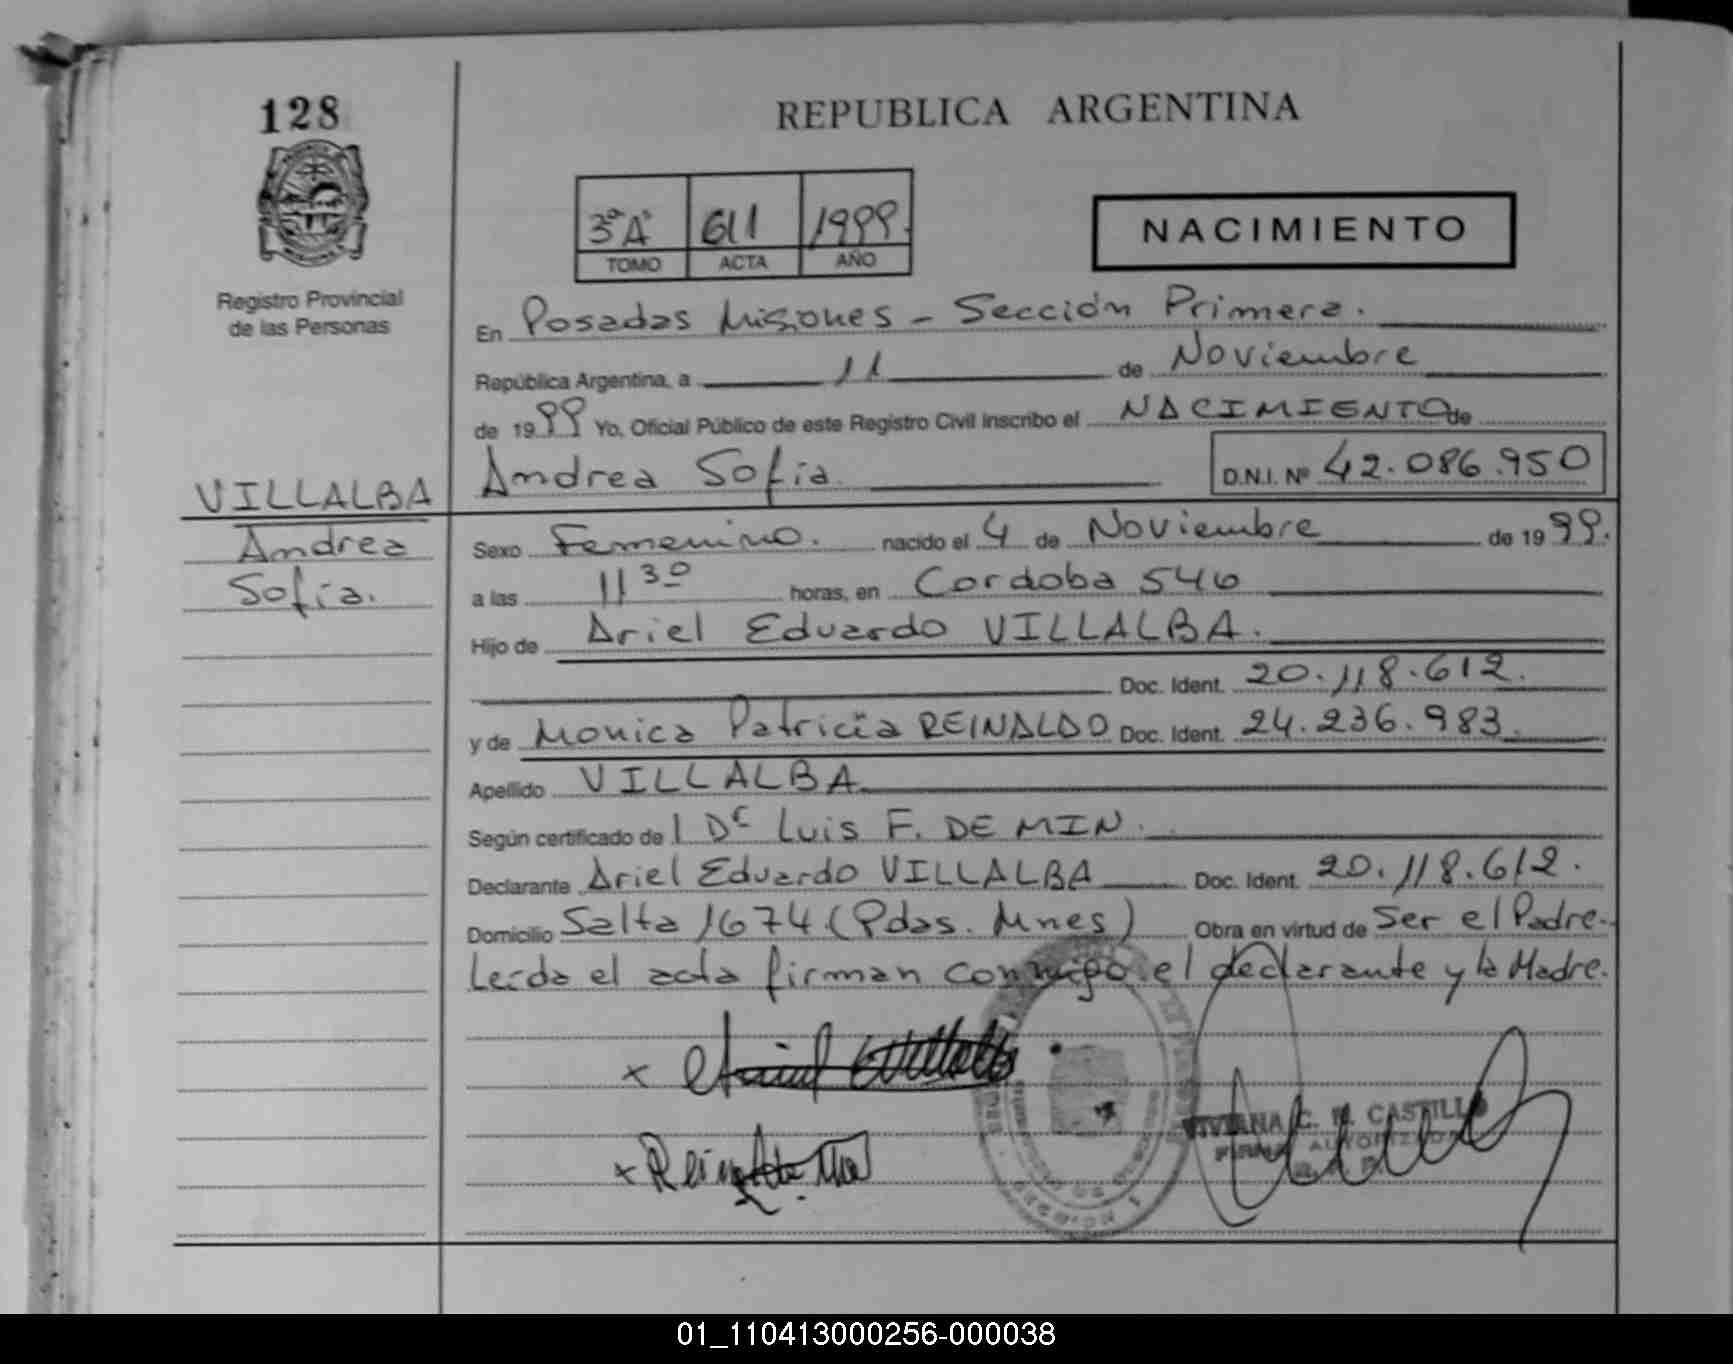 128
REPUBLICA ARGENTINA
3º"A" 611 1999.
TOMO ACTA AÑO
NACIMIENTO
Registro Provincial
de las Personas
En Posadas Misiones - Sección Primera.
República Argentina, a 11 de Noviembre
de 1999 Yo, Oficial Público de este Registro Civil inscribo el NACIMIENTO de
Andrea Sofia. D.N.I. Nº 42.086.950
VILLALBA
Andrea
Sofía.
Sexo Femenino. nacido el 4 de Noviembre de 1999.
a las 11 30 horas, en Cordoba 546
Hijo de Ariel Eduardo VILLALBA.
Doc. Ident. 20.118.612.
y de Monica Patricia REINALDO Doc. Ident. 24.236.983
Apellido VILLALBA
Según certificado de l Dr Luis F. DE MIN.
Declarante Ariel Eduardo VILLALBA Doc. Ident. 20.118.612.
Domicilio Salta 1674 (Pdas. Mnes) Obra en virtud de Ser el Padre.
Leída el acta firman conmigo el declarante y la Madre.
VIVIANA C. CASTILLO
FIRMA AUTORIZADA
01_110413000256-000038